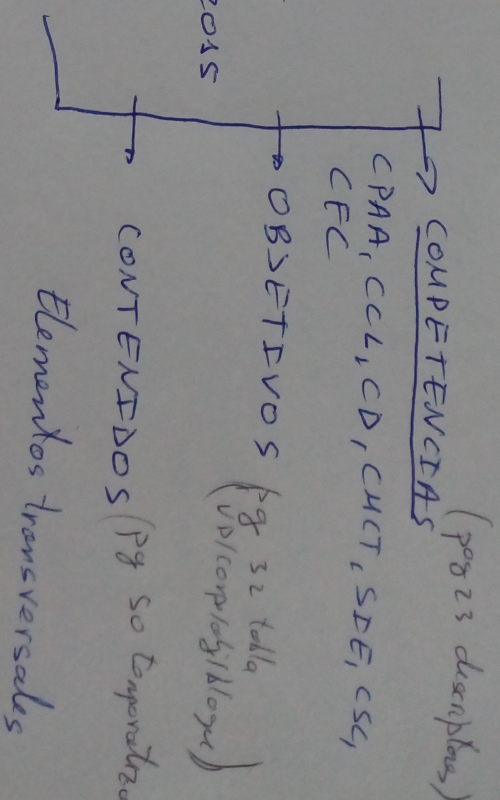 2015
COMPETENCIAS (pag 23 descriptores)
CPAA, CCL, CD, CMCT, SIE, CSC,
CEC
OBJETIVOS (pg 32 tabla
UD/comp/obj/bloque)
CONTENIDOS (pg 50
Elementos transversales